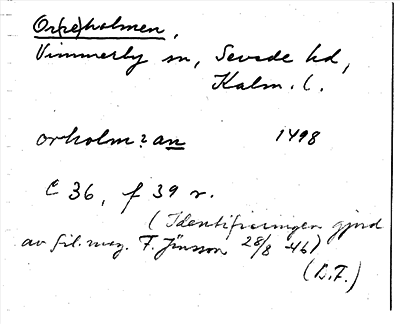 Or(re)holmen,
Vimmerby sn, Sevede hd,
Kalm. l.
orholm?an 1498
C 36, f 39 r.
(Identifieringen gjord
av fil. mag. F. Jönsson 28/8 -46)
(D.F.)